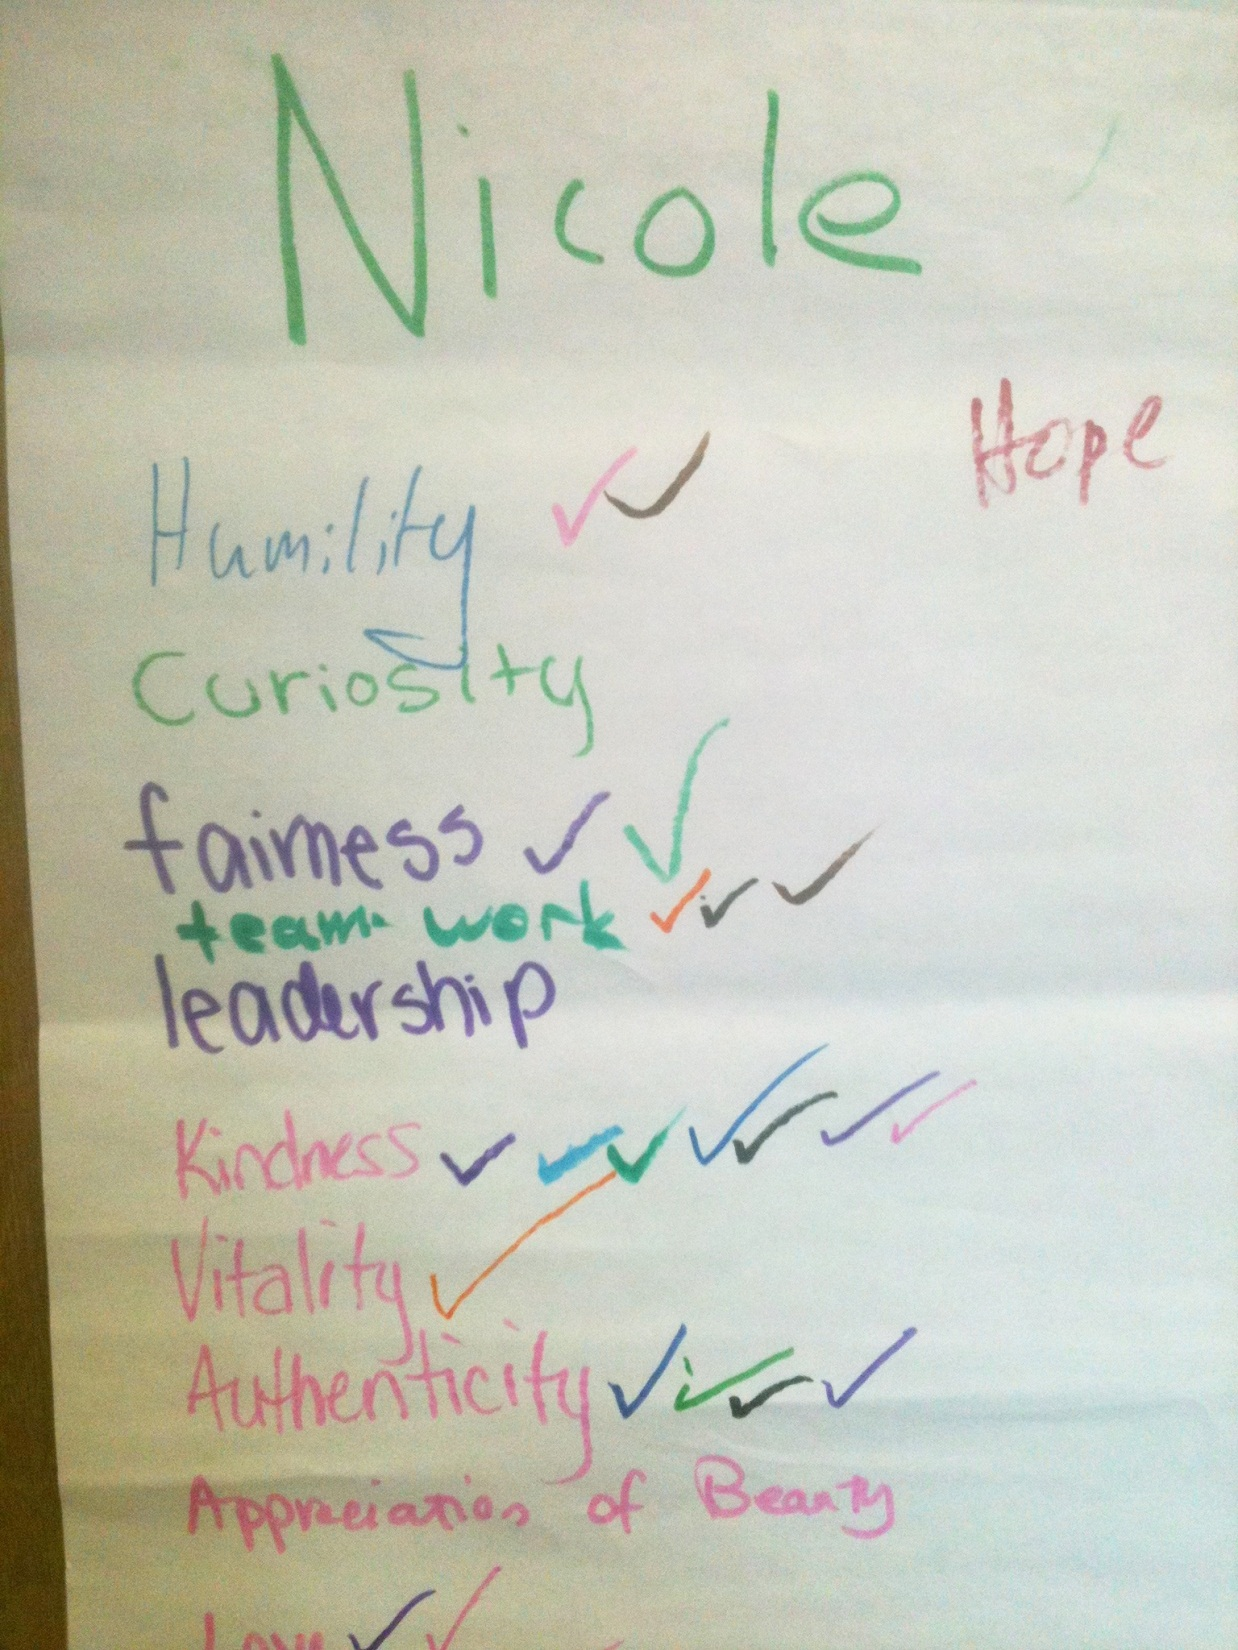 Nicole
Hope
Humility ✓✓
Curiosity
fairness ✓✓
team-work ✓✓✓
leadership
Kindness ✓✓✓✓✓✓✓
Vitality ✓
Authenticity ✓✓✓✓
Appreciation of Beauty
Love ✓✓